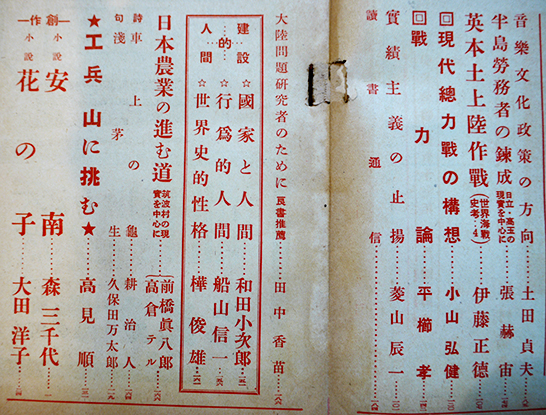 音樂文化政策の方向……土田貞夫
半島勞務者の鍊成(日立・高玉の現實を中心に)……張赫宙
英本土上陸作戰(世界海戰史考・4)……伊藤正德
回現代總力戰の構想……小山弘健
回戰力論……平櫛孝
實績主義の止揚……菱山辰一
讀書通信
大陸問題研究者のために 良書推薦……田中香苗
建設的人間
☆國家と人間……和田小次郎
☆行爲的人間……船山信一
☆世界史的性格……樺俊雄
日本農業の進む道(筑波村の現實を中心に)……前橋眞八郎 高倉テル
詩 車上の龜……耕治人
句 淺茅生……久保田万太郎
★工兵山に挑む★……高見順
―創作―
小説 安南……森三千代
小説 花の子……大田洋子